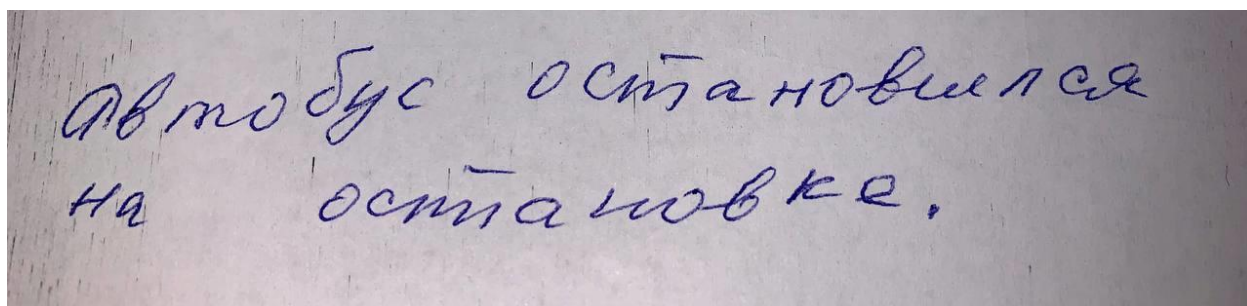 Автобус остановился
на остановке.